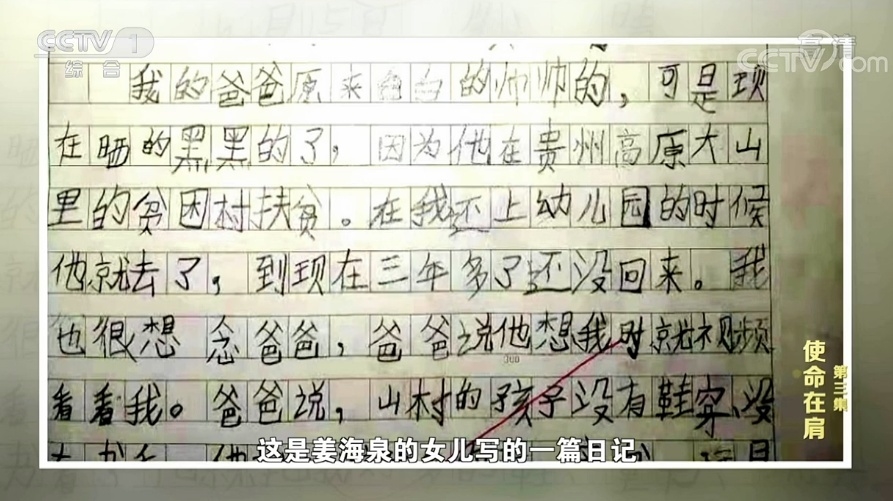 CCTV 1
综合
高清
CCTV.com
我的爸爸原来白白的帅帅的，可是现
在晒的黑黑的了，因为他在贵州高原大山
里的贫困村扶贫。在我还上幼儿园的时候
他就去了，到现在三年多了还没回来。我
也很想念爸爸，爸爸说他想我时就视频
看看我。爸爸说，山村的孩子没有鞋穿、没
300
使命在肩
第三集
这是姜海泉的女儿写的一篇日记